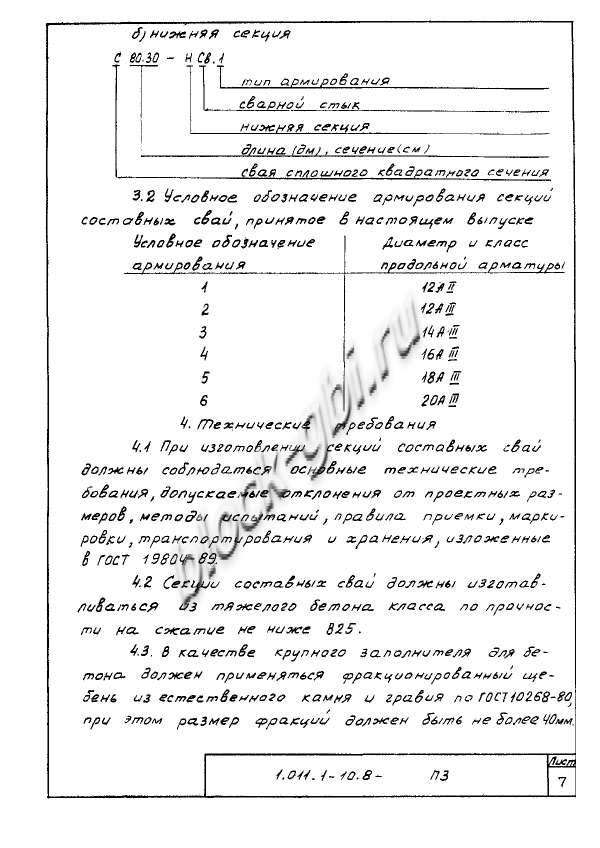 б) нижняя секция
С 80.30 - Н Св.1
тип армирования
сварной стык
нижняя секция
длина (дм), сечение (см)
свая сплошного квадратного сечения
3.2 Условное обозначение армирования секций
составных свай, принятое в настоящем выпуске
Условное обозначение армирования | Диаметр и класс продольной арматуры
1 12А II
2 12А III
3 14А III
4 16А III
5 18А III
6 20А III
4. Технические требования
4.1 При изготовлении секций составных свай
должны соблюдаться основные технические тре-
бования, допускаемые отклонения от проектных раз-
меров, методы испытаний, правила приемки, марки-
ровки, транспортирования и хранения, изложенные
в ГОСТ 19804-89.
4.2 Секции составных свай должны изготав-
ливаться из тяжелого бетона класса по прочнос-
ти на сжатие не ниже В25.
4.3. В качестве крупного заполнителя для бе-
тона должен применяться фракционированный ще-
бень из естественного камня и гравия по ГОСТ 10268-80,
при этом размер фракций должен быть не более 40мм.
1.011.1-10.8- ПЗ
Лист
7
block-gbi.ru